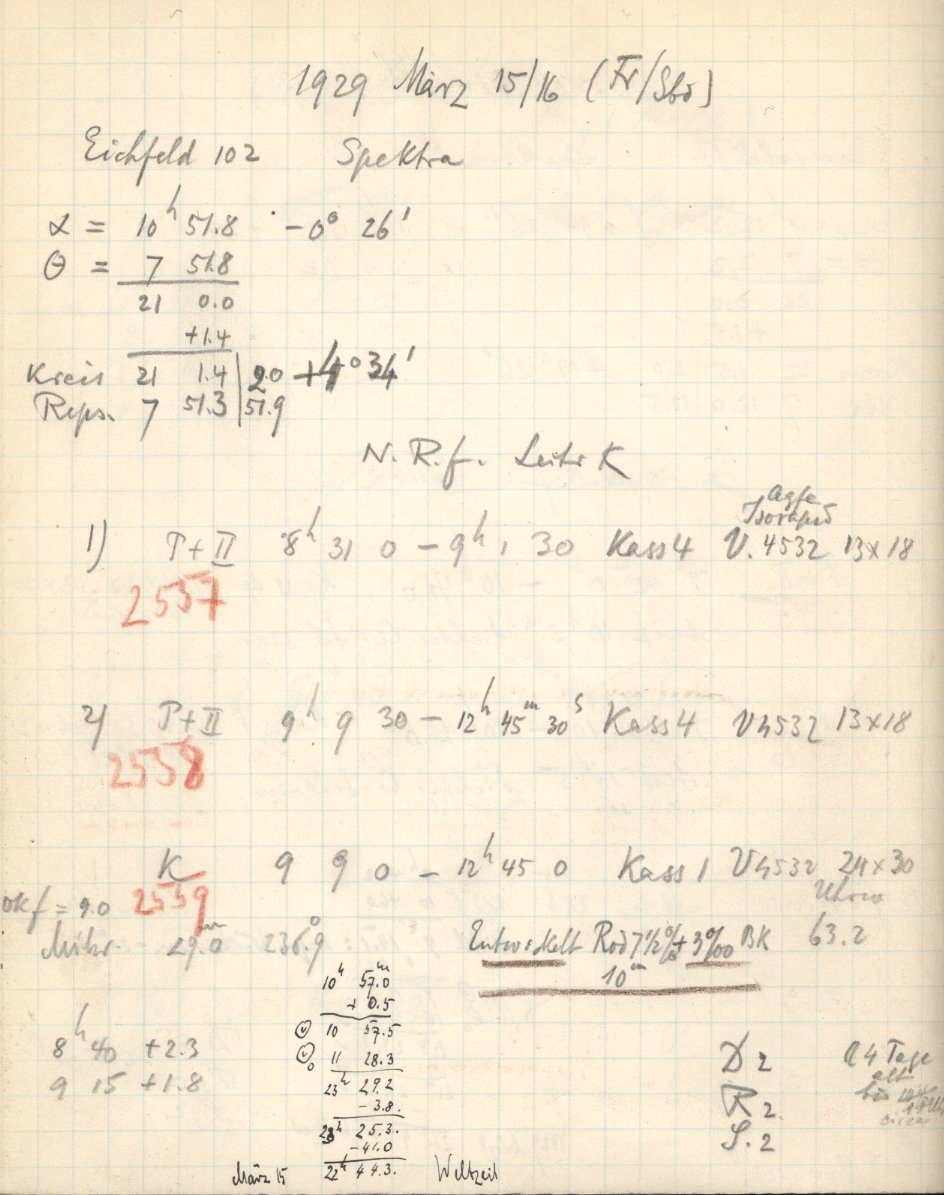 1929 März 15/16 (Fr/Sbd)
Eichfeld 102 Spektra
α = 10h 51.8 -0° 26'
θ = 7 51.8
21 0.0
+1.4
Kreis 21 1.4 20 +4° 34'
Reps. 7 51.3 51.9
N.R.f. Leitr K
Agfa
Isorapid
1) T+II 8h 31 0 - 9h 1 30 Kass 4 V. 4532 13x18
2537
2) T+II 9h 9 30 - 12h 45m 30s Kass 4 V 4532 13x18
2558
K 9 9 0 - 12h 45 0 Kass 1 V 4532 24x30
2559
okf = 9.0
Mikr. 29.0 236.9 Entwickelt Rod 7½% + 3‰ BK 63.2
10m
10h 57.0m
+ 0.5
10 57.5
11 28.3
23h 29.2
- 3.8.
23h 25.3.
-41.0
März 15 22h 44.3. Weltzeit
8h 40 +2.3
9 15 +1.8
D 2
R 2.
S. 2
4 Tage
alt